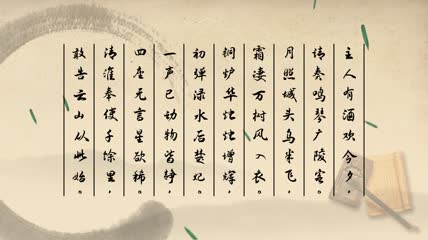 主人有酒欢今夕，
请奏鸣琴广陵客。
月照城头乌半飞，
霜凄万树风入衣。
铜炉华烛烛增辉，
初弹渌水后楚妃。
一声已动物皆静，
四座无言星欲稀。
清淮奉使千余里，
敢告云山从此始。